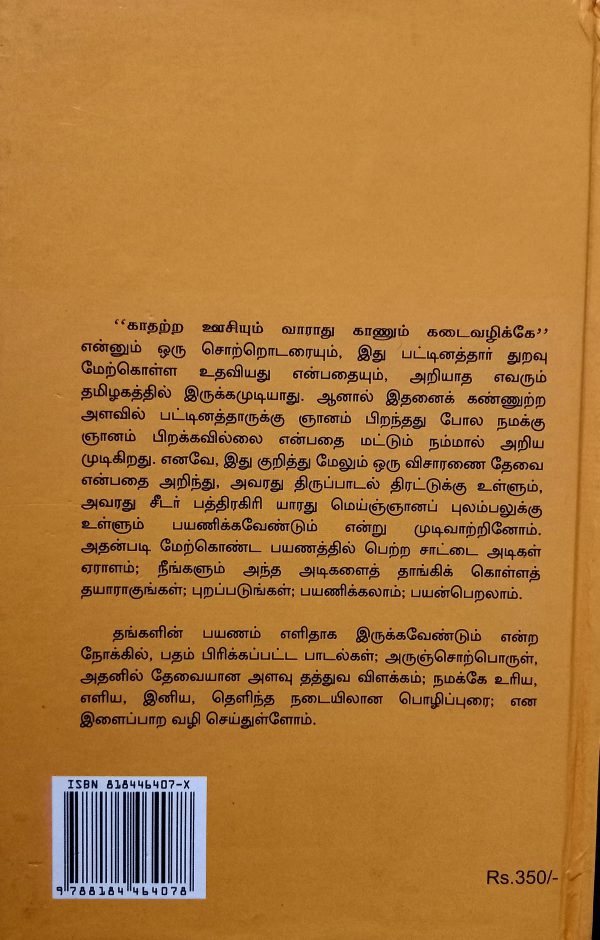 “காதற்ற ஊசியும் வாராது காணும் கடைவழிக்கே”
என்னும் ஒரு சொற்றொடரையும், இது பட்டினத்தார் துறவு
மேற்கொள்ள உதவியது என்பதையும், அறியாத எவரும்
தமிழகத்தில் இருக்கமுடியாது. ஆனால் இதனைக் கண்ணுற்ற
அளவில் பட்டினத்தாருக்கு ஞானம் பிறந்தது போல நமக்கு
ஞானம் பிறக்கவில்லை என்பதை மட்டும் நம்மால் அறிய
முடிகிறது. எனவே, இது குறித்து மேலும் ஒரு விசாரணை தேவை
என்பதை அறிந்து, அவரது திருப்பாடல் திரட்டுக்கு உள்ளும்,
அவரது சீடர் பத்திரகிரி யாரது மெய்ஞ்ஞானப் புலம்பலுக்கு
உள்ளும் பயணிக்கவேண்டும் என்று முடிவாற்றினோம்.
அதன்படி மேற்கொண்ட பயணத்தில் பெற்ற சாட்டை அடிகள்
ஏராளம்; நீங்களும் அந்த அடிகளைத் தாங்கிக் கொள்ளத்
தயாராகுங்கள்; புறப்படுங்கள்; பயணிக்கலாம்; பயன்பெறலாம்.
தங்களின் பயணம் எளிதாக இருக்கவேண்டும் என்ற
நோக்கில், பதம் பிரிக்கப்பட்ட பாடல்கள்; அருஞ்சொற்பொருள்,
அதனில் தேவையான அளவு தத்துவ விளக்கம்; நமக்கே உரிய,
எளிய, இனிய, தெளிந்த நடையிலான பொழிப்புரை; என
இளைப்பாற வழி செய்துள்ளோம்.
ISBN 818446407-X
9 788184 464078
Rs.350/-